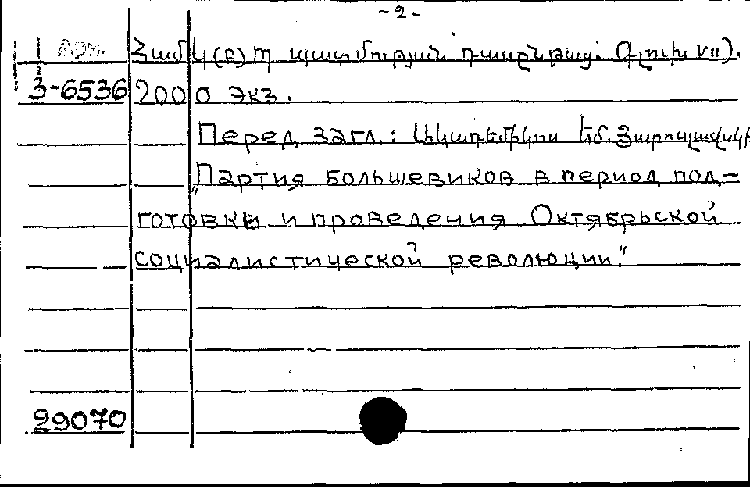 -2-
Համկ(բ)Պ պատմության դասընթաց: Գլուխ VII).
3-6536 2000 экз.
Перед загл.: Ակադեմիկոս Եմ. Յարոսլավսկի
„Партия большевиков в период под-
готовки и проведения Октябрьской
социалистической революции."
29070